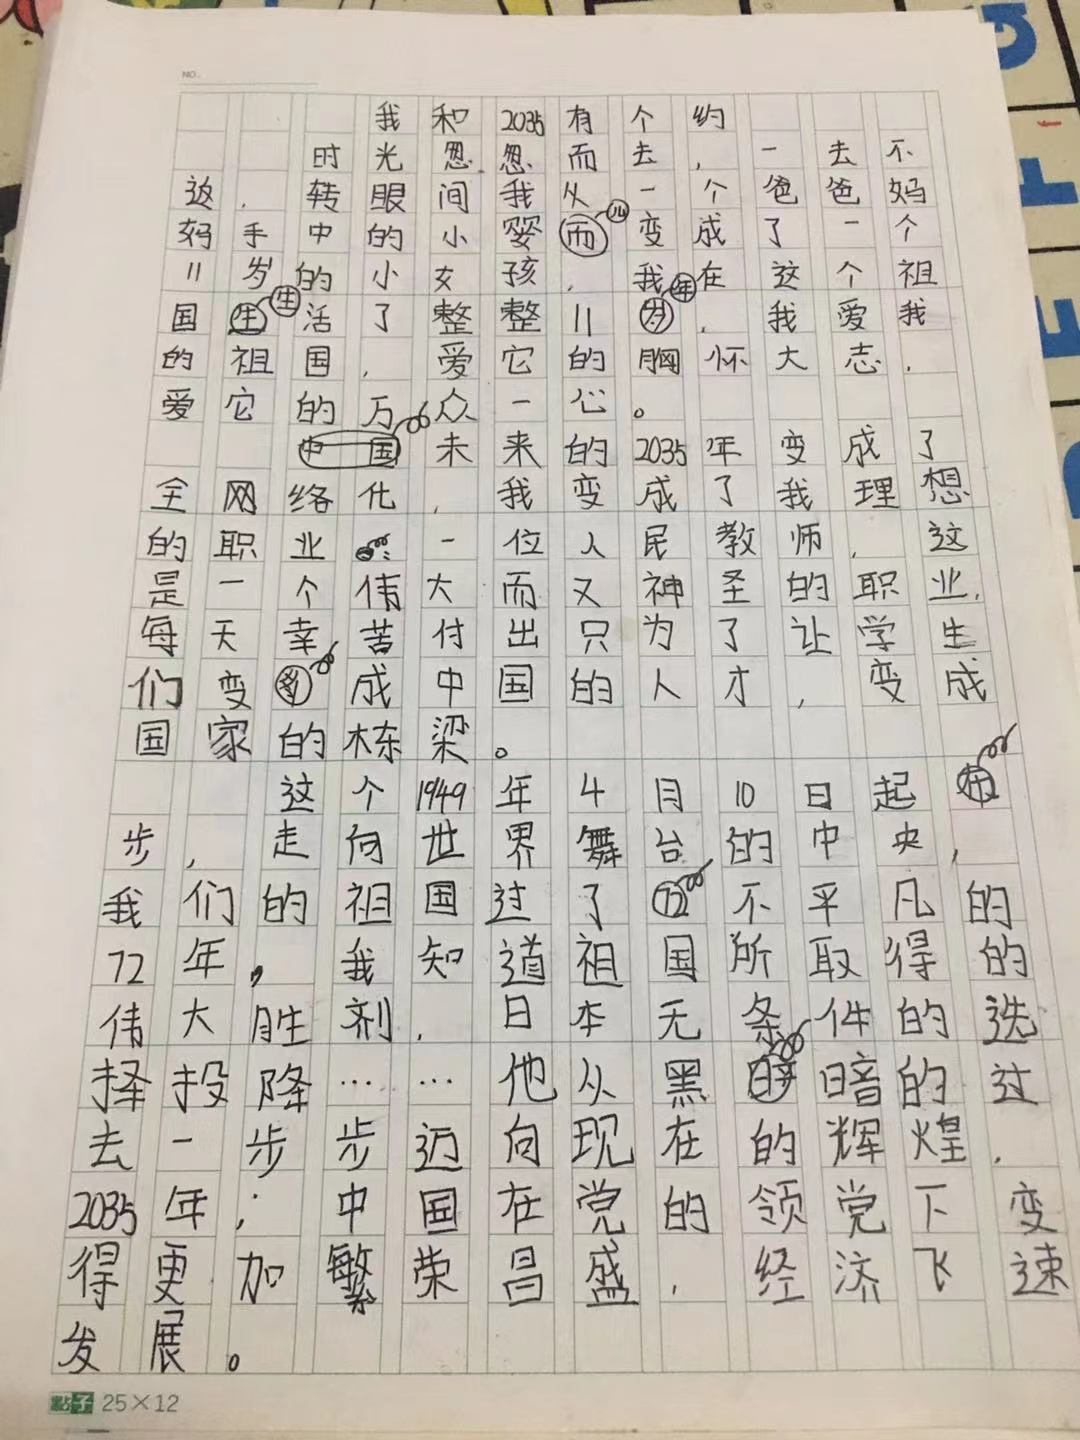 NO.
我和2035有个约
时光忽忽而去，一去不
返，转眼间我从一个爸爸妈
妈手中的小婴儿变成了一个
11岁的小女孩，我在这个祖
国生活了整整11年，我爱我
的祖国，爱它的胸怀大志，
爱它的万众一心。
未来的2035年变成了
全网络化，我变成了我理想
的职业 一位人民教师，这
是一个伟大而又神圣的职业，
每天幸苦付出只为了让学生
们变成中国的人才，变成
国家的栋梁。
这个1949年4月10日起
步，走向世界舞台的中央，
我们的祖国过了不平凡的
72年，我知道祖国所取得的
伟大胜剂，日本无条件的选
择投降……他从黑暗的过
去一步步迈向现在的辉煌，
2035年，中国在党的领党下变
得更加繁荣昌盛，经济飞速
发展。
點子 25×12